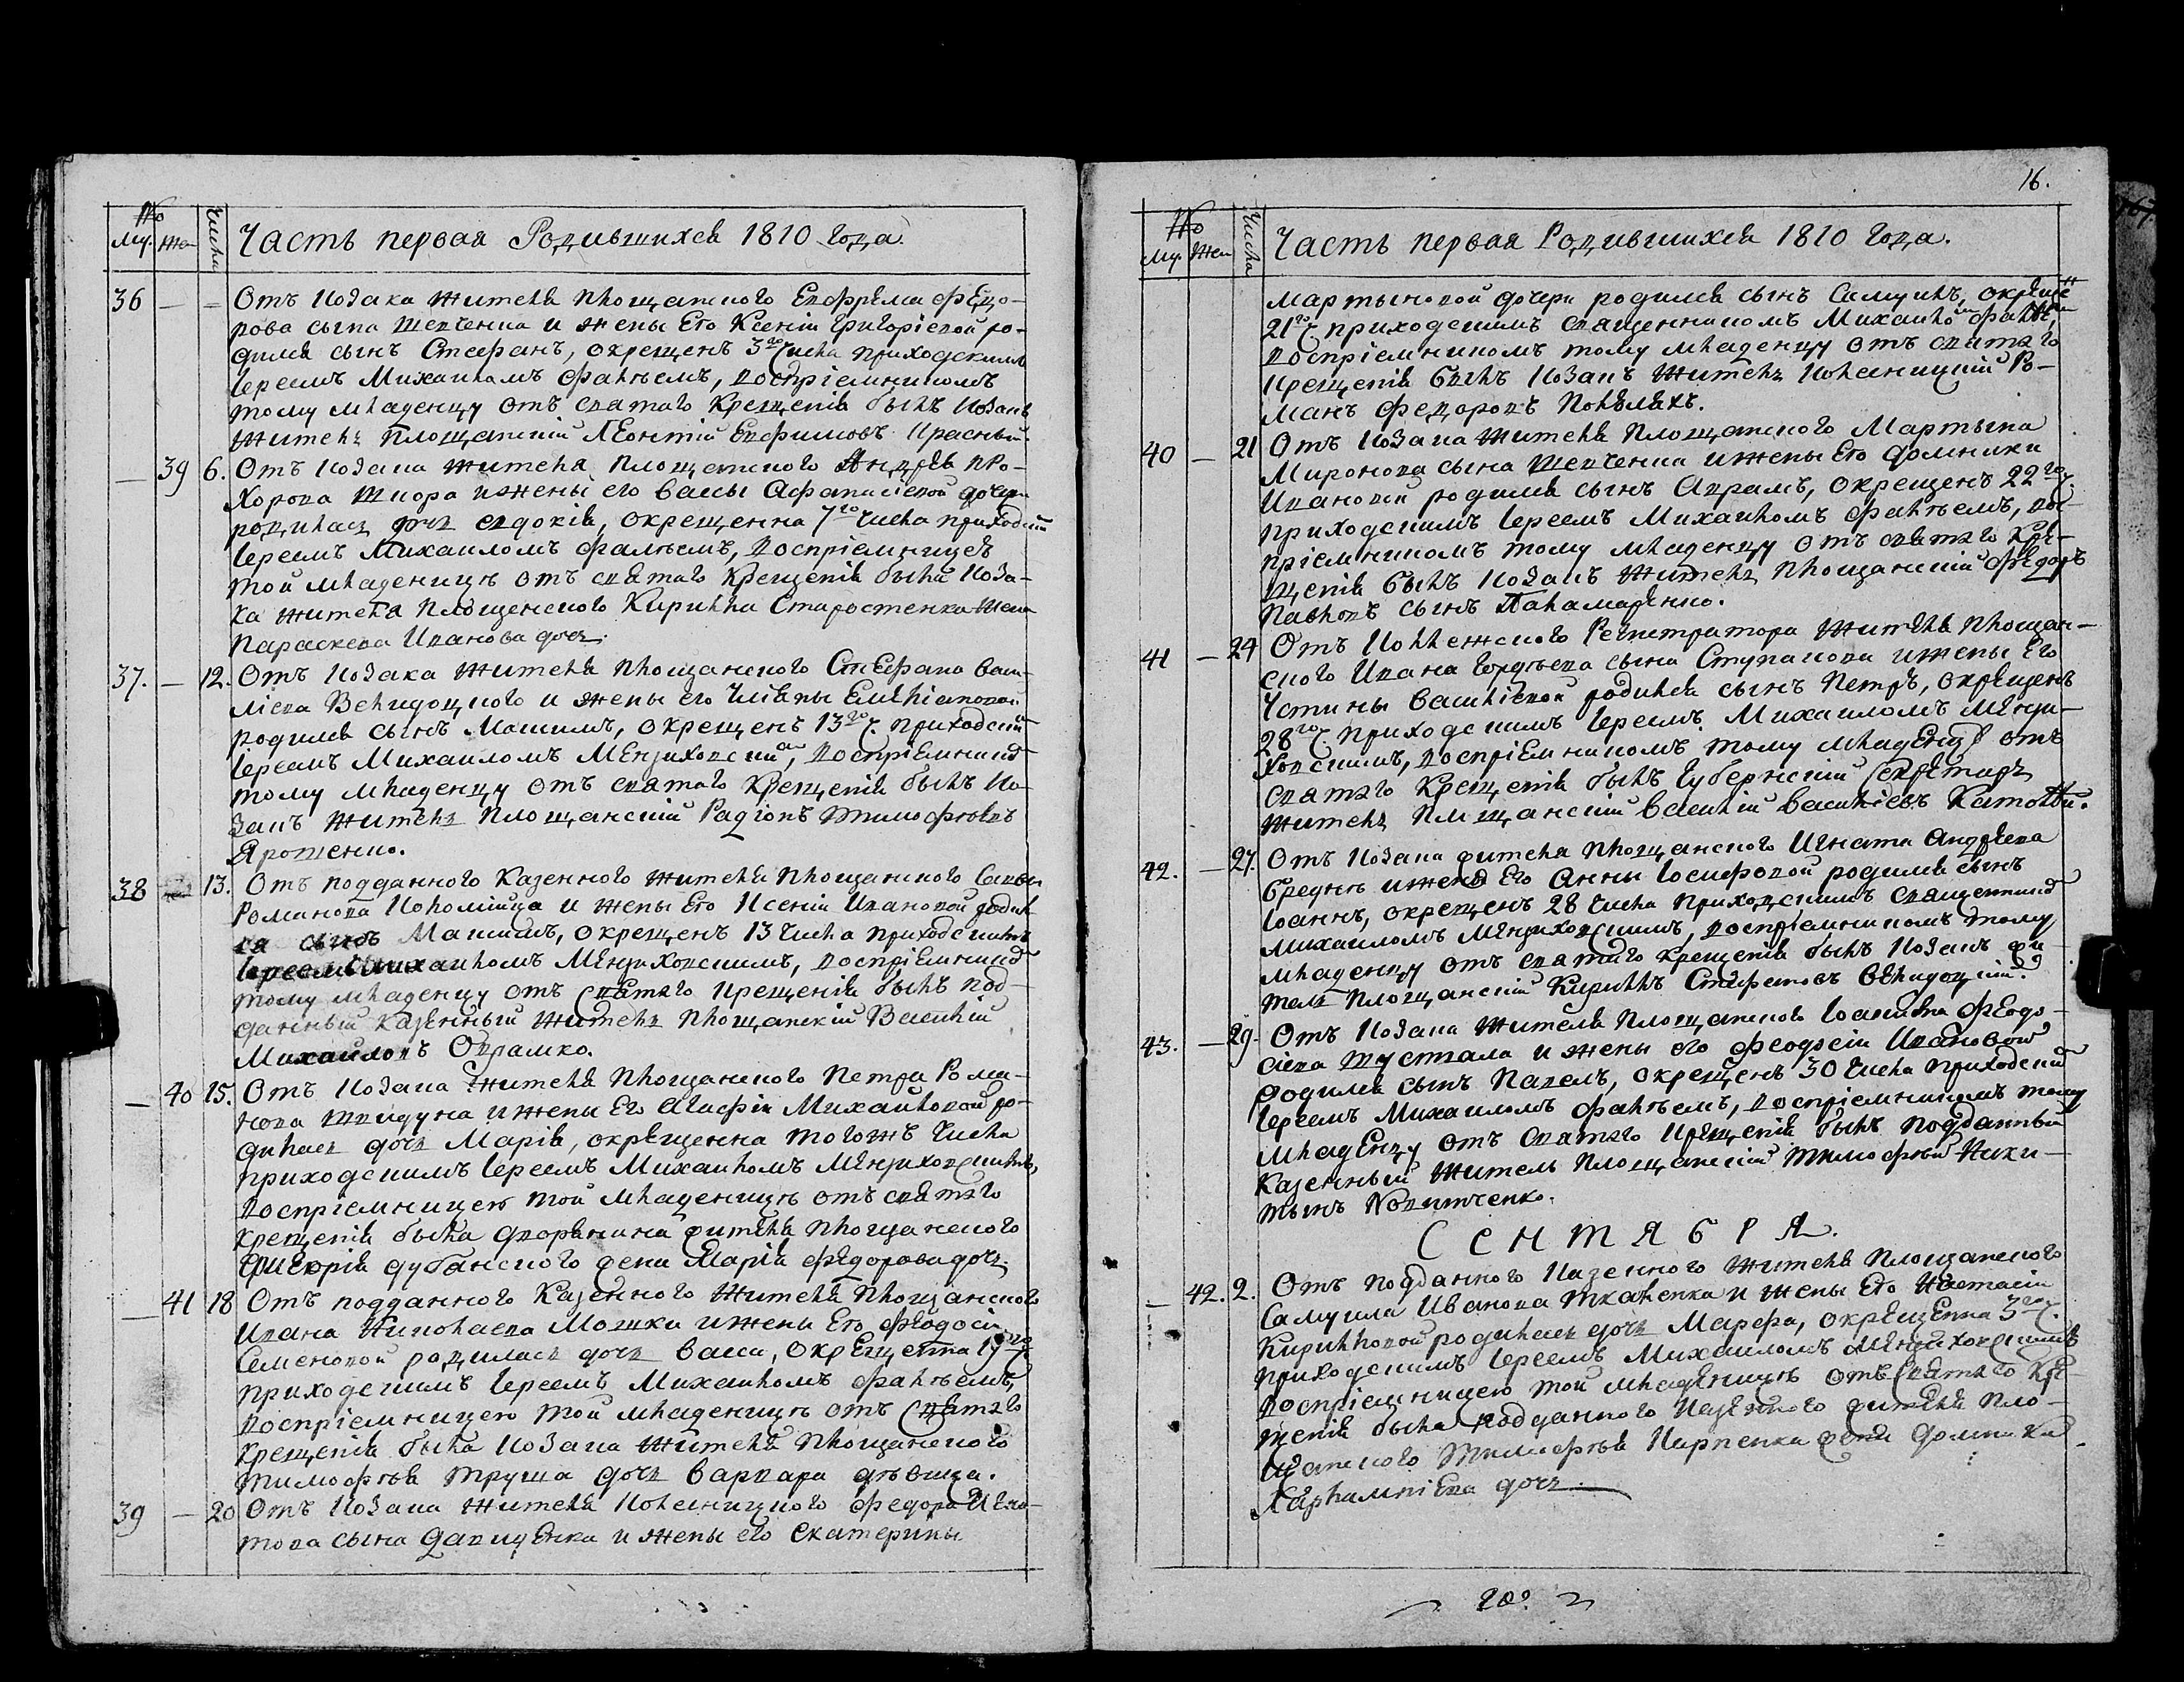 №
Му. Же Числа Часть первая Родившихся 1810 года.
36 — — Отъ козака жителя площанского Евфрема Федо-
рова сына Шевченка и жены Его Ксеніи Григоріевой ро-
дился сынъ Стефанъ, окрещенъ 3го Числа приходскимъ
Іереемъ Михаиломъ Фалѣемъ, воспріемникомъ
тому младенцу отъ святаго Крещенія былъ козакъ
житель площанскій Леонтій Евфимовъ Красный.
— 39 6. Отъ козака жителя площанского Андрея про-
хорова и жены его Вассы Афанасіевой дочери
родилась дочь Евдокія, окрещенна 7го числа приходскимъ
Іереемъ Михаиломъ Фалѣемъ, воспріемницею
той младеницѣ отъ святаго Крещенія была коза-
ка жителя площенского Кирилла Старостенка жена
Параскева Иванова дочь.
37. — 12. Отъ козака жителя площанского Стефана Васи-
ліева Велидоцкого и жены его Уліяны Емельяновой
родился сынъ Максимъ, окрещенъ 13го ч. приходскимъ
Іереемъ Михаиломъ Мензиховскимъ, воспріемникомъ
тому младенцу отъ святаго Крещенія былъ ко-
закъ житель площанскій Радіонъ Тимофѣевъ
Ярошенко.
38 — 13. Отъ подданного Казенного жителя площанского Саввы
Романова Коломійца и жены Его Ксеніи Ивановой родил
ся сынъ Максимъ, окрещенъ 13 Числа приходскимъ
Іереемъ Михаиломъ Мензиховскимъ, воспріемникомъ
тому младенцу отъ Святаго Крещенія былъ под-
данный казенный житель площанскій Василій
Михаиловъ Оврамко.
— 40 15. Отъ козака жителя площанского Петра Рома-
нова и жены Его Агафіи Михаиловой ро-
дилась дочь Марія, окрещенна тогожъ Числа
приходскимъ Іереемъ Михаиломъ Мензиховскимъ,
воспріемницею той младеницѣ отъ святаго
крещенія была дворянина жителя площанского
Григорія дубанского жена Марія Федорова дочь.
— 41 18 Отъ подданного Казенного жителя площанского
Ивана Николаева Мошки и жены Его Феодосіи
Семеновой родилась дочь Васса, окрещенна 19го ч.
приходскимъ Іереемъ Михаиломъ Фалѣемъ,
воспріемницею той младеницѣ отъ Святаго
крещенія была козака жителя площанского
Тимофѣя Труша дочь Варвара дѣвица.
39 — 20 Отъ козака жителя Федора Игна-
това сына Давиденка и жены его Екатерины
16.
№
Му. Жен Числа Часть первая Родившихся 1810 года.
Мартыновой дочери родился сынъ Самуилъ, окрещенъ
21го ч. приходскимъ священникомъ Михаиломъ Фалѣемъ,
воспріемникомъ тому младенцу отъ святаго
крещенія былъ козакъ житель Ро-
манъ Федоровъ
40 — 21 Отъ козака жителя площанского Мартына
Миронова сына Шевченка и жены Его Домники
Ивановой родился сынъ Аврамъ, окрещенъ 22го ч.
приходскимъ Іереемъ Михаиломъ Фалѣемъ, вос-
пріемникомъ тому младенцу отъ святаго Кре-
щенія былъ козакъ житель площанскій Федоръ
Павловъ сынъ Паламаренко.
41 — 24 Отъ Коллежского Регистратора жителя площан-
ского Ивана Гордѣева сына Ступакова и жены Его
Устины Василіевой родился сынъ Петръ, окрещенъ
28го ч. приходскимъ Іереемъ Михаиломъ Мензи-
ховскимъ, воспріемникомъ тому младенцу отъ
святаго Крещенія былъ Губернскій Секретарь
житель площанскій Василій Василіевъ
42. — 27. Отъ козака жителя площанского Игната Андреева
и жены Его Анны Іосифовой родился сынъ
Іоаннъ, окрещенъ 28 Числа приходскимъ священникомъ
Михаиломъ Мензиховскимъ, воспріемникомъ тому
младенцу отъ святаго крещенія былъ козакъ жи-
тель площанскій Кириллъ Стефановъ Велидоцкій.
43. — 29. Отъ козака жителя площанского Іоакима Феодо-
сіева и жены его Феодосіи Ивановой
родился сынъ Павелъ, окрещенъ 30 Числа приходскимъ
Іереемъ Михаиломъ Фалѣемъ, воспріемникомъ тому
младенцу отъ Святаго Крещенія былъ подданный
Казенный житель площанскій Тимофѣй Ники-
тинъ
СЕНТЯБРЯ.
— 42. 2. Отъ подданного Казенного жителя площанского
Самуила Иванова Ткаченка и жены Его Настасіи
Кирилловой родилась дочь Марфа, окрещенна 3го ч.
приходскимъ Іереемъ Михаиломъ Мензиховскимъ
воспріемницею той младеницѣ отъ Святаго Кре-
щенія была подданного Казенного жителя пло-
щанского Тимофѣя Карпенка жена Домника
Харлампіева дочь